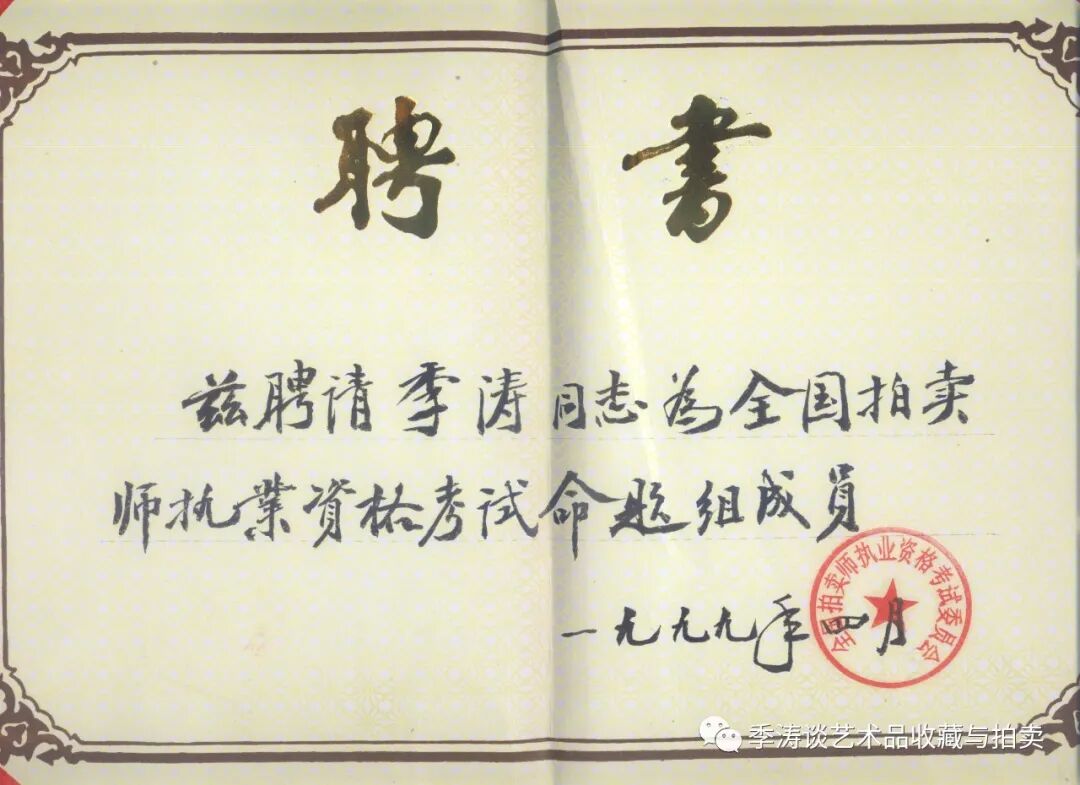 聘書
兹聘请季涛同志為全国拍卖
师执業资格考试命题组成员
一九九九年四月
全国拍卖师执业资格考试委员会
季涛谈艺术品收藏与拍卖